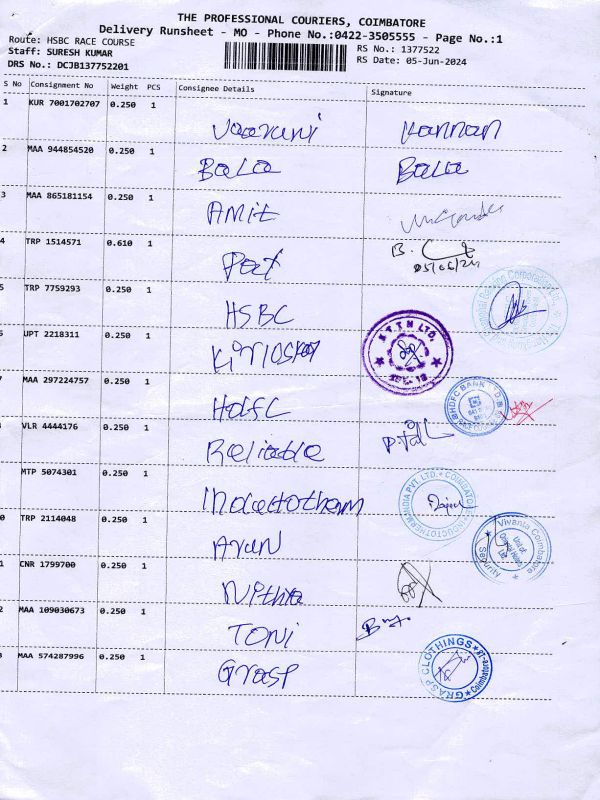 THE PROFESSIONAL COURIERS, COIMBATORE
Delivery Runsheet - MO - Phone No.:0422-3505555 - Page No.:1
Route: HSBC RACE COURSE
RS No.: 1377522
Staff: SURESH KUMAR
RS Date: 05-Jun-2024
DRS No.: DCJB137752201
S No Consignment No Weight PCS Consignee Details Signature
1 KUR 7001702707 0.250 1
Vaaruni Kannan
2 MAA 944854520 0.250 1
Bala Bala
3 MAA 865181154 0.250 1
Amit
4 TRP 1514571 0.610 1
Pat B.
05/06/24
5 TRP 7759293 0.250 1
HSBC
6 JPT 2218311 0.250 1
Kirloskar S.T.T.N LTD.
7 MAA 297224757 0.250 1
Hdfc HDFC BANK
VLR 4444176 0.250 1
Reliable
MTP 5074301 0.250 1
Inductotherm INDUCTOTHERM INDIA PVT. LTD. COIMBATORE
0 TRP 2114048 0.250 1
Arun Vivanta Coimbatore
Security
1 CNR 1799700 0.250 1
Nithta
2 MAA 109030673 0.250 1
Toni
3 MAA 574287996 0.250 1
Grasp GRASP CLOTHINGS Coimbatore-18